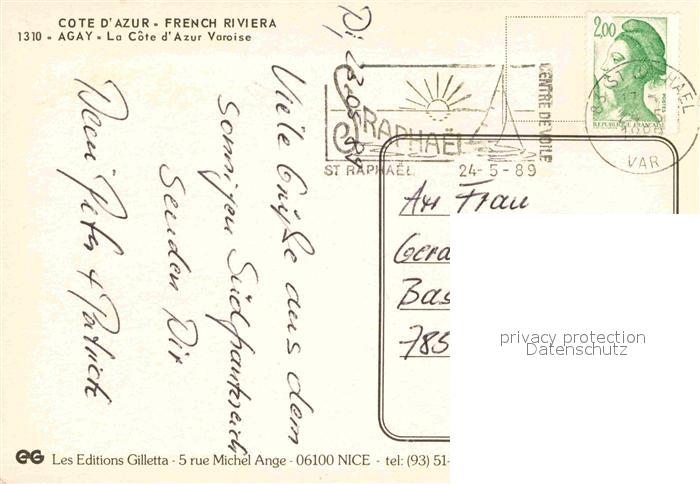 COTE D'AZUR - FRENCH RIVIERA
1310 - AGAY - La Côte d'Azur Varoise
Di 23.05.89
Viele Grüße aus dem
sonnigen Südfrankreich
Senden Dir
Peter & Patrick
RAPHAËL
ST RAPHAËL 24-5-89
CENTRE DE VOILE
2,00
POSTES
REPUBLIQUE FRANÇAISE
ST RAPHAEL
VAR
An Frau
Gera
Bas
785
privacy protection
Datenschutz
EG Les Editions Gilletta - 5 rue Michel Ange - 06100 NICE - tel: (93) 51-